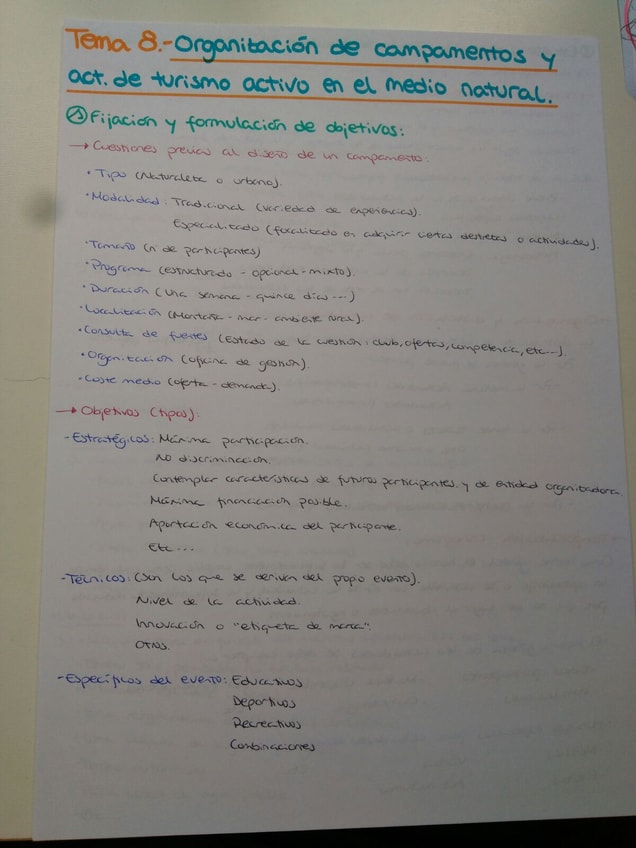 Tema 8.- Organización de campamentos y
act. de turismo activo en el medio natural.
A Fijación y formulación de objetivos:
→ Cuestiones previas al diseño de un campamento:
· Tipo (Naturaleza o urbano).
· Modalidad: Tradicional (variedad de experiencias).
Especializado (focalizado en adquirir ciertas destrezas o actividades).
· Tamaño (n de participantes)
· Programa (estructurado - opcional - mixto).
· Duración (Una semana - quince días ...)
· Localización (Montaña - mar - ambiente rural).
· Consulta de fuentes (Estado de la cuestión: club, ofertas, competencia, etc...).
· Organización (oficina de gestión).
· Coste medio (oferta - demanda).
→ Objetivos (tipos):
- Estratégicos: Máxima participación.
No discriminación.
Contemplar características de futuros participantes y de entidad organizadora.
Máxima financiación posible.
Aportación económica del participante.
Etc...
- Técnicos: (Son los que se derivan del propio evento).
Nivel de la actividad.
Innovación o "etiqueta de marca".
Otros.
- Específicos del evento: Educativos
Deportivos
Recreativos
Combinaciones